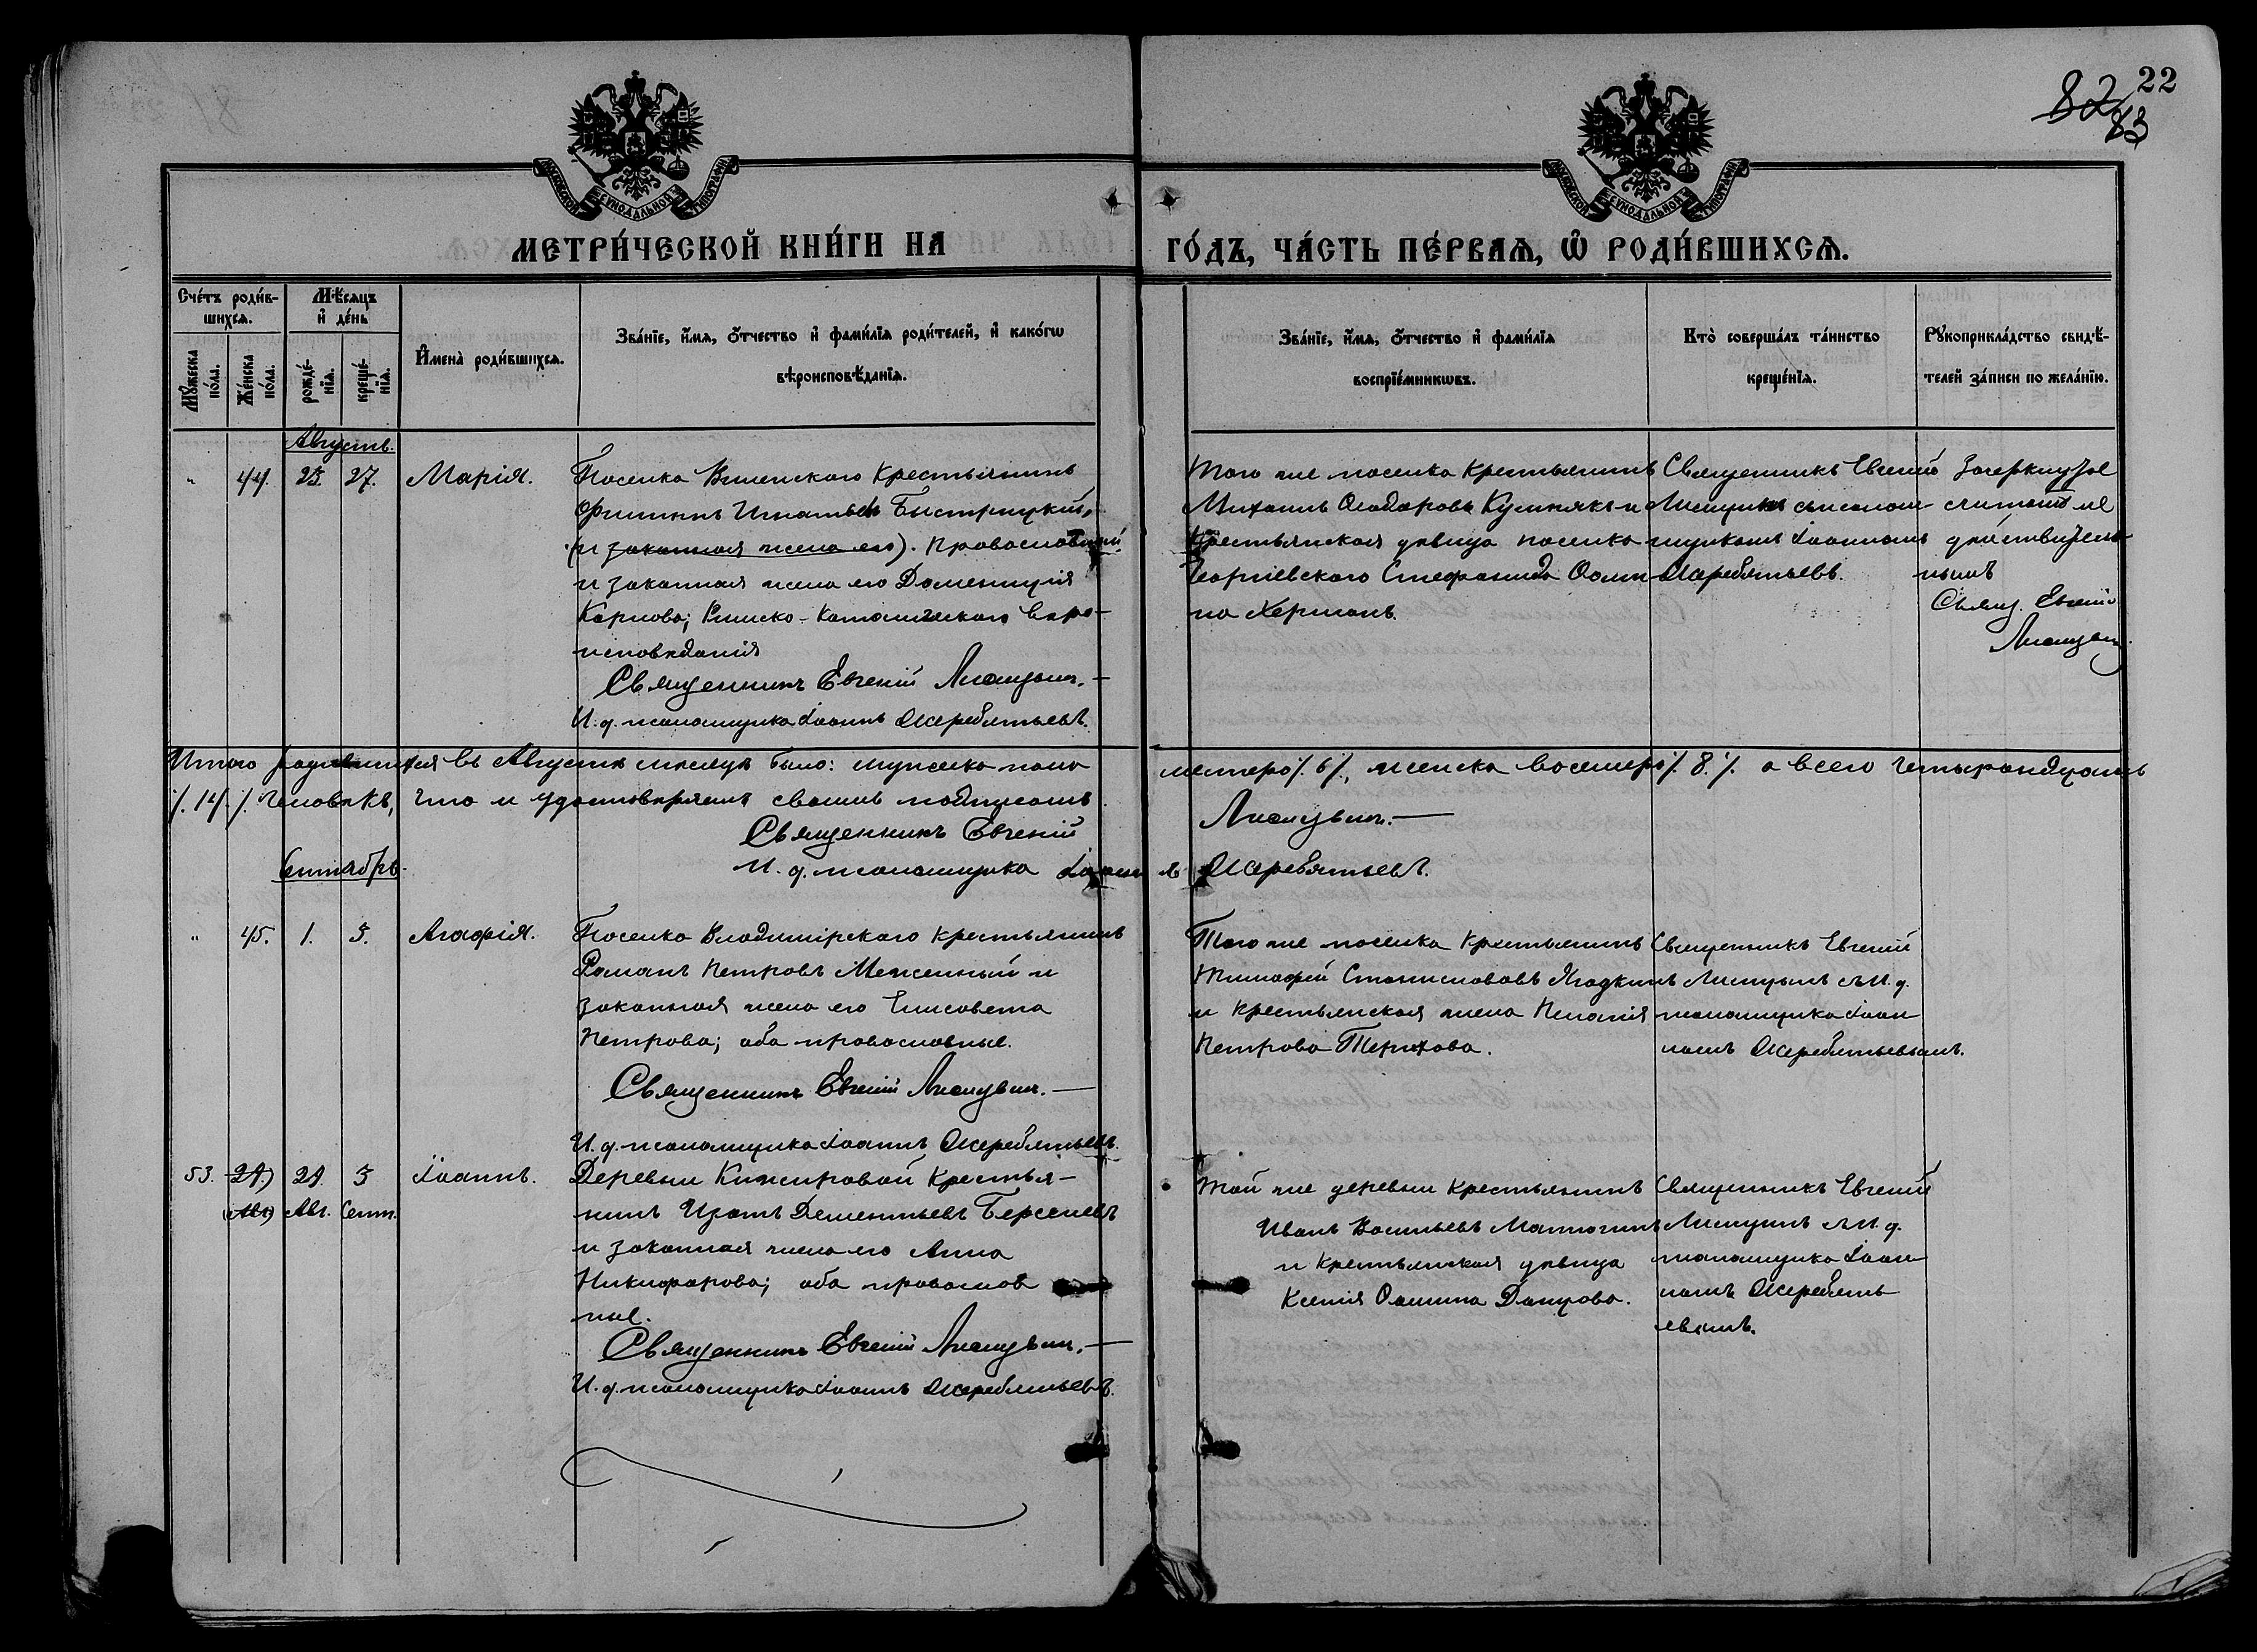 22
82
83
МОСКОВСКОЙ СУНОДАЛЬНОЙ ТИПОГРАФІИ
МОСКОВСКОЙ СУНОДАЛЬНОЙ ТИПОГРАФІИ
МЕТРИ́ЧЕСКОЙ КНИ́ГИ НА
ГО́ДЪ, ЧА́СТЬ ПЕ́РВАѦ, Ѡ҆ РОДИ́ВШИХСѦ.
Сче́тъ роди́в-
шихсѧ.
Мѣ́сѧцъ
и҆ де́нь
Мꙋ́жеска
по́ла.
Же́нска
по́ла.
рожде́-
нїѧ.
креще́-
нїѧ.
И҆мена̀ роди́вшихсѧ.
Зва́нїе, и҆́мѧ, ѻ҆́тчество и҆ фами́лїѧ роди́телей, и҆ како́гѡ
вѣроисповѣ́данїѧ.
Зва́нїе, и҆́мѧ, ѻ҆́тчество и҆ фами́лїѧ
воспрїе́мникѡвъ.
Кто̀ соверша́лъ та́инство
креще́нїѧ.
Рꙋкоприкла́дство свидѣ́-
телей за́писи по жела́нїю.
Августъ.
" 44. 25. 27. Марія.
Поселка Виленскаго Крестьянинъ
Филиппъ Игнатьевъ Быстрицкій,
(и законная жена его). Православный
и законная жена его Доменикія
Карпова; Римско-Католическаго веро-
исповѣданія
Священникъ Евгеній Лисицынъ.
И. д. псаломщика Іоаннъ Жеребятьевъ.
Того же поселка Крестьянинъ
Михаилъ Ѳеодоровъ Кузнякъ и
Крестьянская дѣвица поселка
Георгіевскаго Стефанида Осипо-
ва Херманъ.
Священникъ Евгеній
Лисицынъ съ псалом-
щикомъ Іоанномъ
Жеребятьевъ.
Зачеркнутое
считать не
дѣйствитель-
нымъ
Свящ. Евгеній
Лисицынъ.
Итого родившихся въ Августѣ мѣсяцѣ было: мужеска пола
шестеро /. 6 /., женска восмеро /. 8. /. а всего четырнадцать
/. 14 /. человѣкъ, что и удостовѣряемъ своимъ подписомъ.
Священникъ Евгеній Лисицынъ.
И. д. псаломщика Іоаннъ Жеребятьевъ.
Сентябрь.
" 45. 1. 3. Агафія.
Поселка Владимірскаго крестьянинъ
Романъ Петровъ Меженный и
законная жена его Елисавета
Петрова; оба православные.
Священникъ Евгеній Лисицынъ.
И. д. псаломщика Іоаннъ Жеребятьевъ.
Того же поселка Крестьянинъ
Тимофей Станиславовъ Ягодкинъ
и крестьянская жена Пелагія
Петрова Терихова.
Священникъ Евгеній
Лисицынъ съ И. д.
псаломщика Іоан-
номъ Жеребятьевымъ.
53. 29.) 29. 3 Іоаннъ.
(Авг) Авг. Сент.
Деревни Кижировой Крестья-
нинъ Игнатъ Дементьевъ Берсеневъ
и законная жена его Анна
Никифорова; оба православ
ные.
Священникъ Евгеній Лисицынъ.
И. д. псаломщика Іоаннъ Жеребятьевъ.
Той же деревни крестьянинъ
Иванъ Васильевъ
и крестьянская дѣвица
Ксенія Осипова
Священникъ Евгеній
Лисицынъ съ И. д.
псаломщика Іоан-
номъ Жеребять-
евымъ.